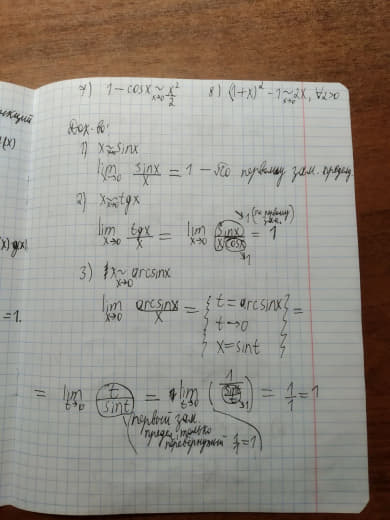 7) 1 - cosx ~ x²/2 x→0 8) (1+x)^α - 1 ~ αx, ∀α>0 x→0
Док-во:
1) x ~ sinx x→0
lim x→0 sinx/x = 1 - по первому зам. пределу.
2) x ~ tgx x→0
lim x→0 tgx/x = lim x→0 sinx/(x cosx) = 1
→1 (по первому зам.
→1
3) x ~ arcsinx x→0
lim x→0 arcsinx/x = { t = arcsinx
t→0
x = sint } =
= lim t→0 t/sint = lim t→0 (1/(sint/t)) = 1/1 = 1
→1
первый зам.
предел, только
перевернутый 1/1 = 1
(x)
(x) g(x)
=1.